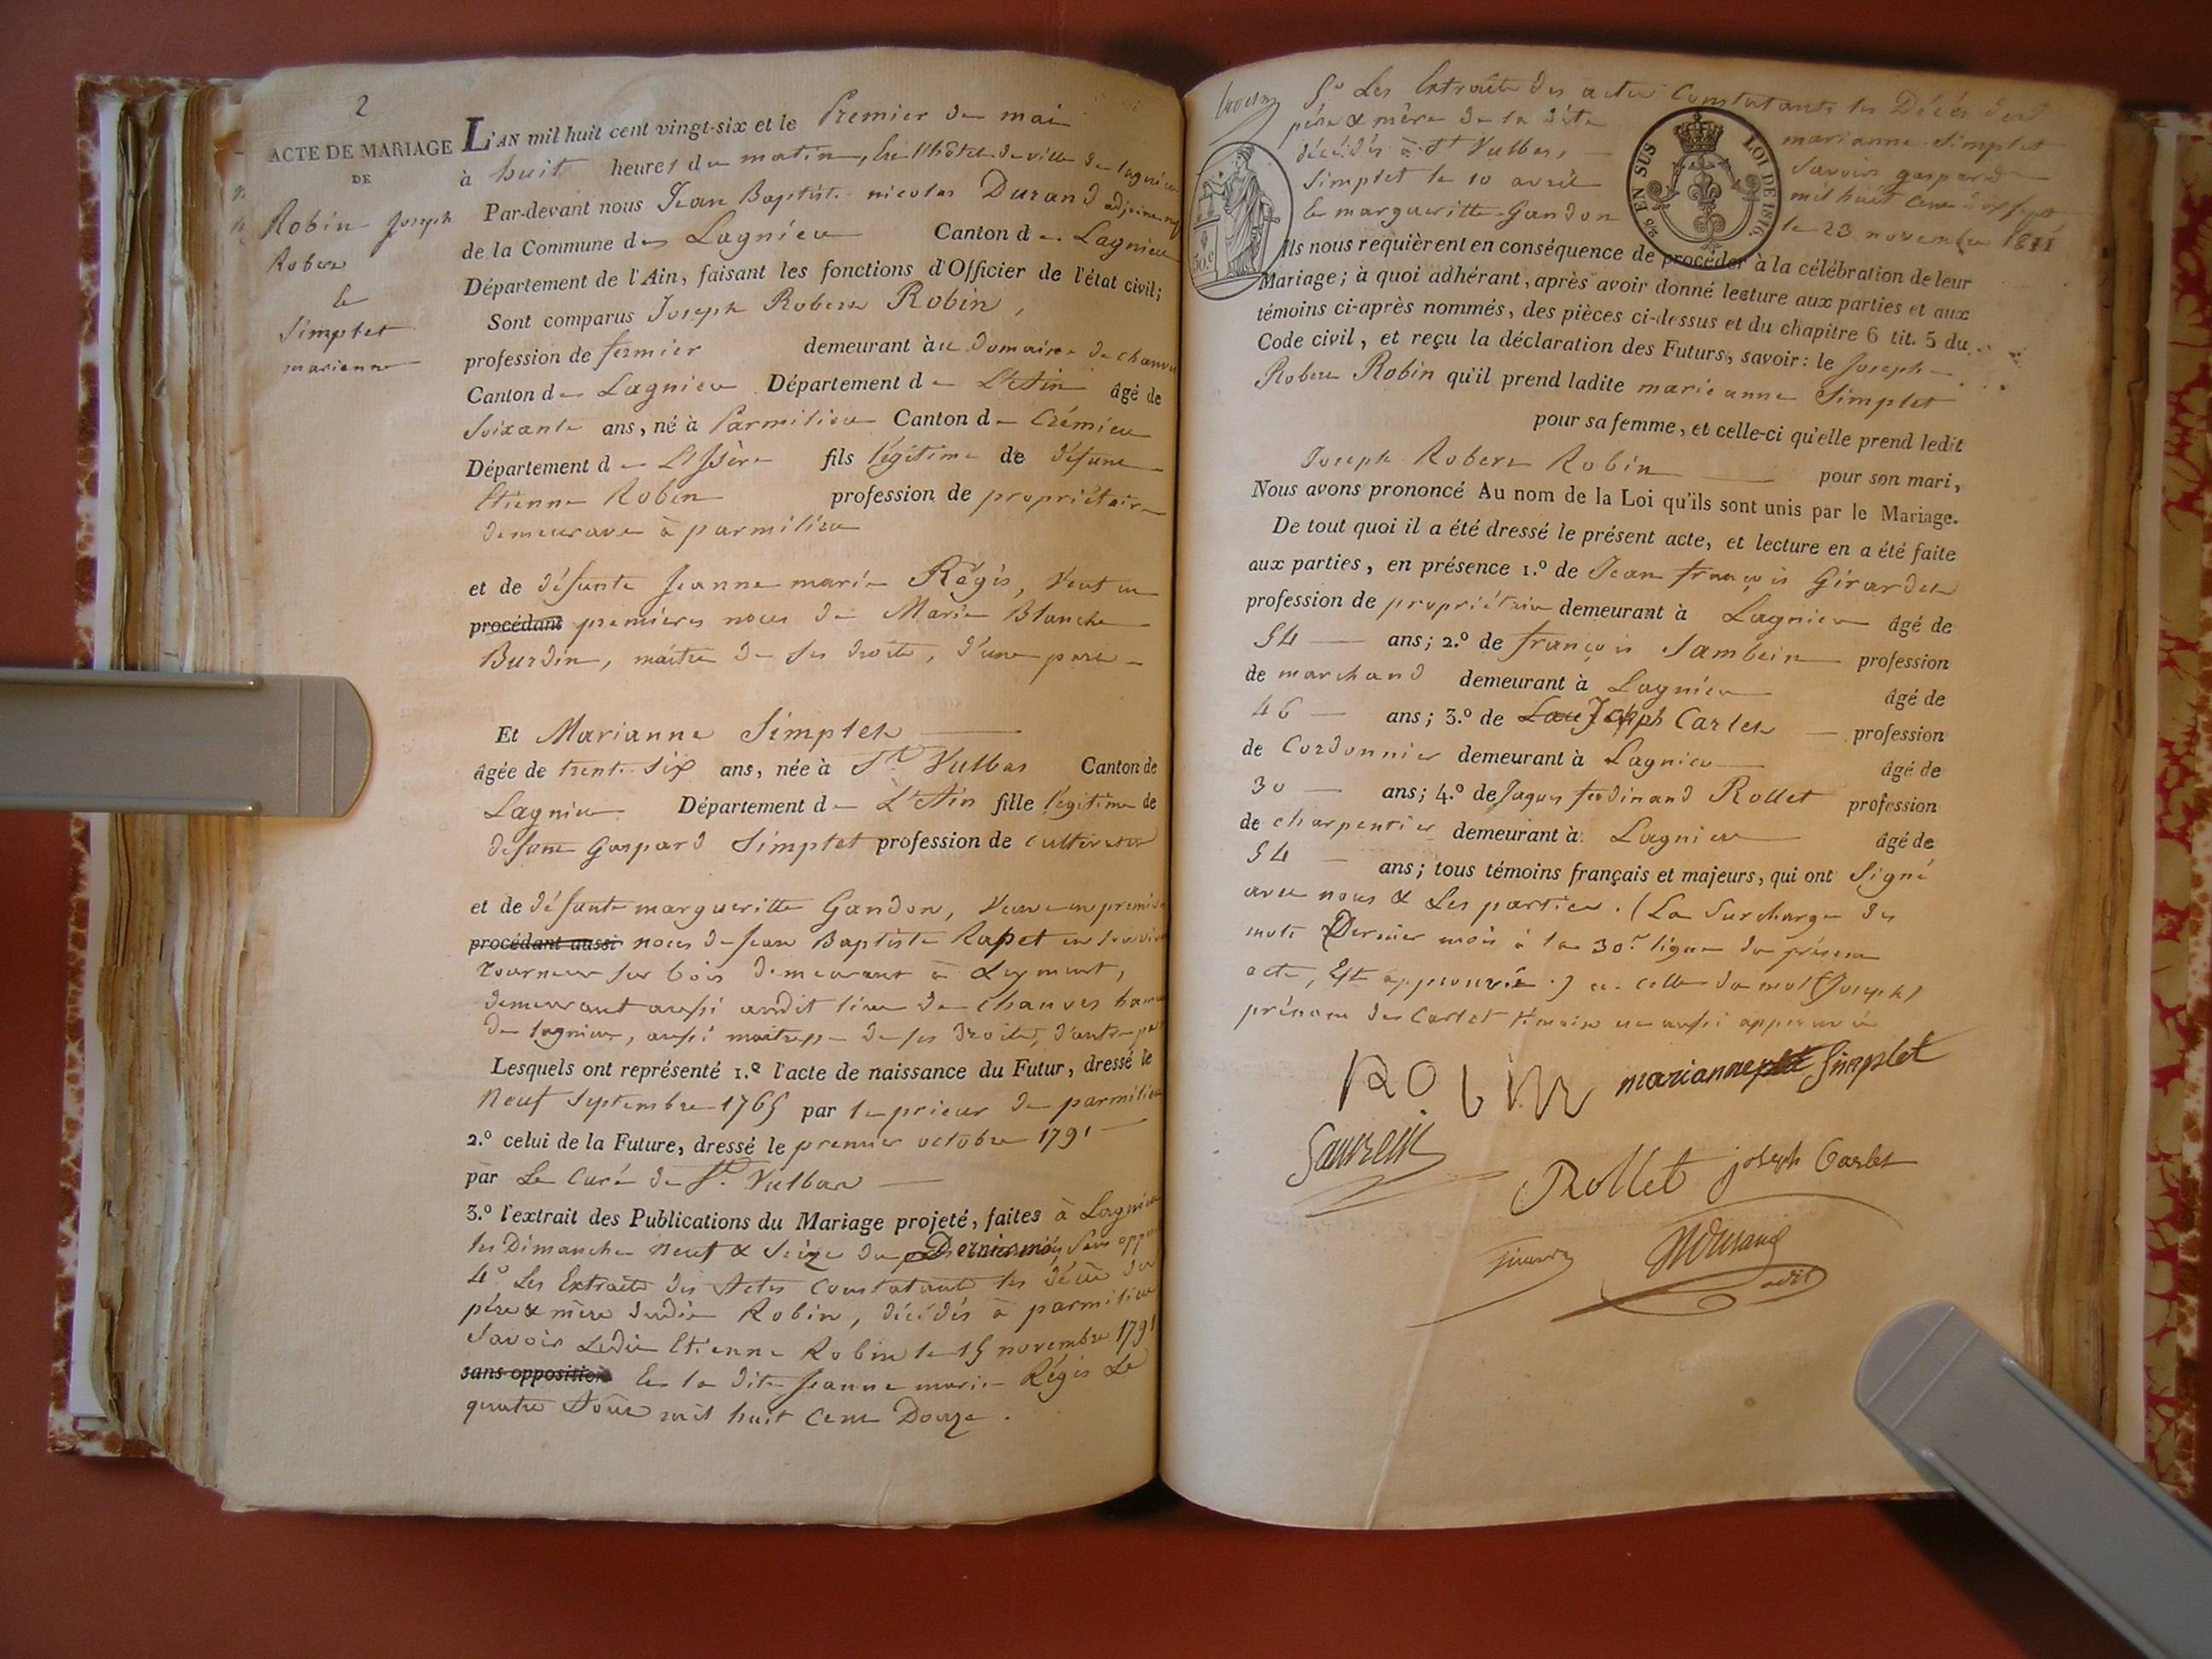 2
ACTE DE MARIAGE
DE
Robin Joseph
Robert
et
Simplet
marianne
L'AN mil huit cent vingt-six et le Premier de mai
à huit heures du matin, en l'hôtel de ville de lagnieu
Par-devant nous Jean Baptiste nicolas Durand adjoint
de la Commune de Lagnieu Canton de Lagnieu
Département de l'Ain, faisant les fonctions d'Officier de l'état civil;
Sont comparus Joseph Robert Robin,
profession de fermier demeurant àu Domaine de chanves
Canton de Lagnieu Département de L'Ain âgé de
Soixante ans, né à Parmilieu Canton de Crémieu
Département de L'Isère fils légitime de défunt
Etienne Robin profession de propriétaire
demeurant à parmilieu
et de défunte Jeanne marie Régis, Veuf en
procédant premières noces de Marie Blanche
Burdin, maître de ses droits, d'une part
Et Marianne Simplet
âgée de trente six ans, née à St Vulbas Canton de
Lagnieu Département de L'Ain fille légitime de
defunt Gaspard Simplet profession de cultivateur
et de défunte margueritte Gandon, Veuve en premières
procédant aussi noces de Jean Baptiste Rapet en son vivant
Tourneur sur bois demeurant à Leyment,
demeurant aussi audit lieu de Chanves hameau
de lagnieu, aussi maitresse de ses droits, d'autre part
Lesquels ont représenté 1.º l'acte de naissance du Futur, dressé le
Neuf Septembre 1765 par le prieur de parmilieu
2.º celui de la Future, dressé le premier octobre 1791
par Le Curé de St. Vulbas
3.º l'extrait des Publications du Mariage projeté, faites à Lagnieu
les Dimanche Neuf & Seize du Dernier mois, Sans opp
4º Les Extraits des Actes Constatant les décès des
père & mère dudit Robin, décédés à parmilieu
Savoir Ledit Etienne Robin le 15 novembre 1791
sans opposition Et la dite Jeanne marie Régis Le
quatre Aout mil huit Cent Douze.
5º Les Extraits des actes Constatants les Décès des
père & mère de la dite marianne Simplet
décédés à St Vulbas, Savoir gaspard
Simplet le 10 avril mil huit cent dix sept
et margueritte Gandon le 23 novembre 1811
5/2 EN SUS LOI DE 1816.
50.c
Ils nous requièrent en conséquence de procéder à la célébration de leur
Mariage; à quoi adhérant, après avoir donné lecture aux parties et aux
témoins ci-après nommés, des pièces ci-dessus et du chapitre 6 tit. 5 du
Code civil, et reçu la déclaration des Futurs, savoir: le Joseph
Robert Robin qu'il prend ladite marie anne Simplet
pour sa femme, et celle-ci qu'elle prend ledit
Joseph Robert Robin pour son mari,
Nous avons prononcé Au nom de la Loi qu'ils sont unis par le Mariage.
De tout quoi il a été dressé le présent acte, et lecture en a été faite
aux parties, en présence 1.º de Jean françois Girardet
profession de propriétaire demeurant à Lagnieu âgé de
54 ans; 2.º de françois profession
de marchand demeurant à Lagnieu âgé de
46 ans; 3.º de Joseph Carlet profession
de Cordonnier demeurant à Lagnieu âgé de
30 ans; 4.º de Jaques ferdinand Rollet profession
de charpentier demeurant à Lagnieu âgé de
54 ans; tous témoins français et majeurs, qui ont Signé
avec nous & Les parties. (La Surcharge des
mots Dernier mois à la 30e ligne du présent
acte, Est approuvée.) et celle du mot (Joseph)
prénom de Carlet témoin est aussi approuvée
ROBIN marianne Simplet
Rollet joseph Carlet
Durand
adjt